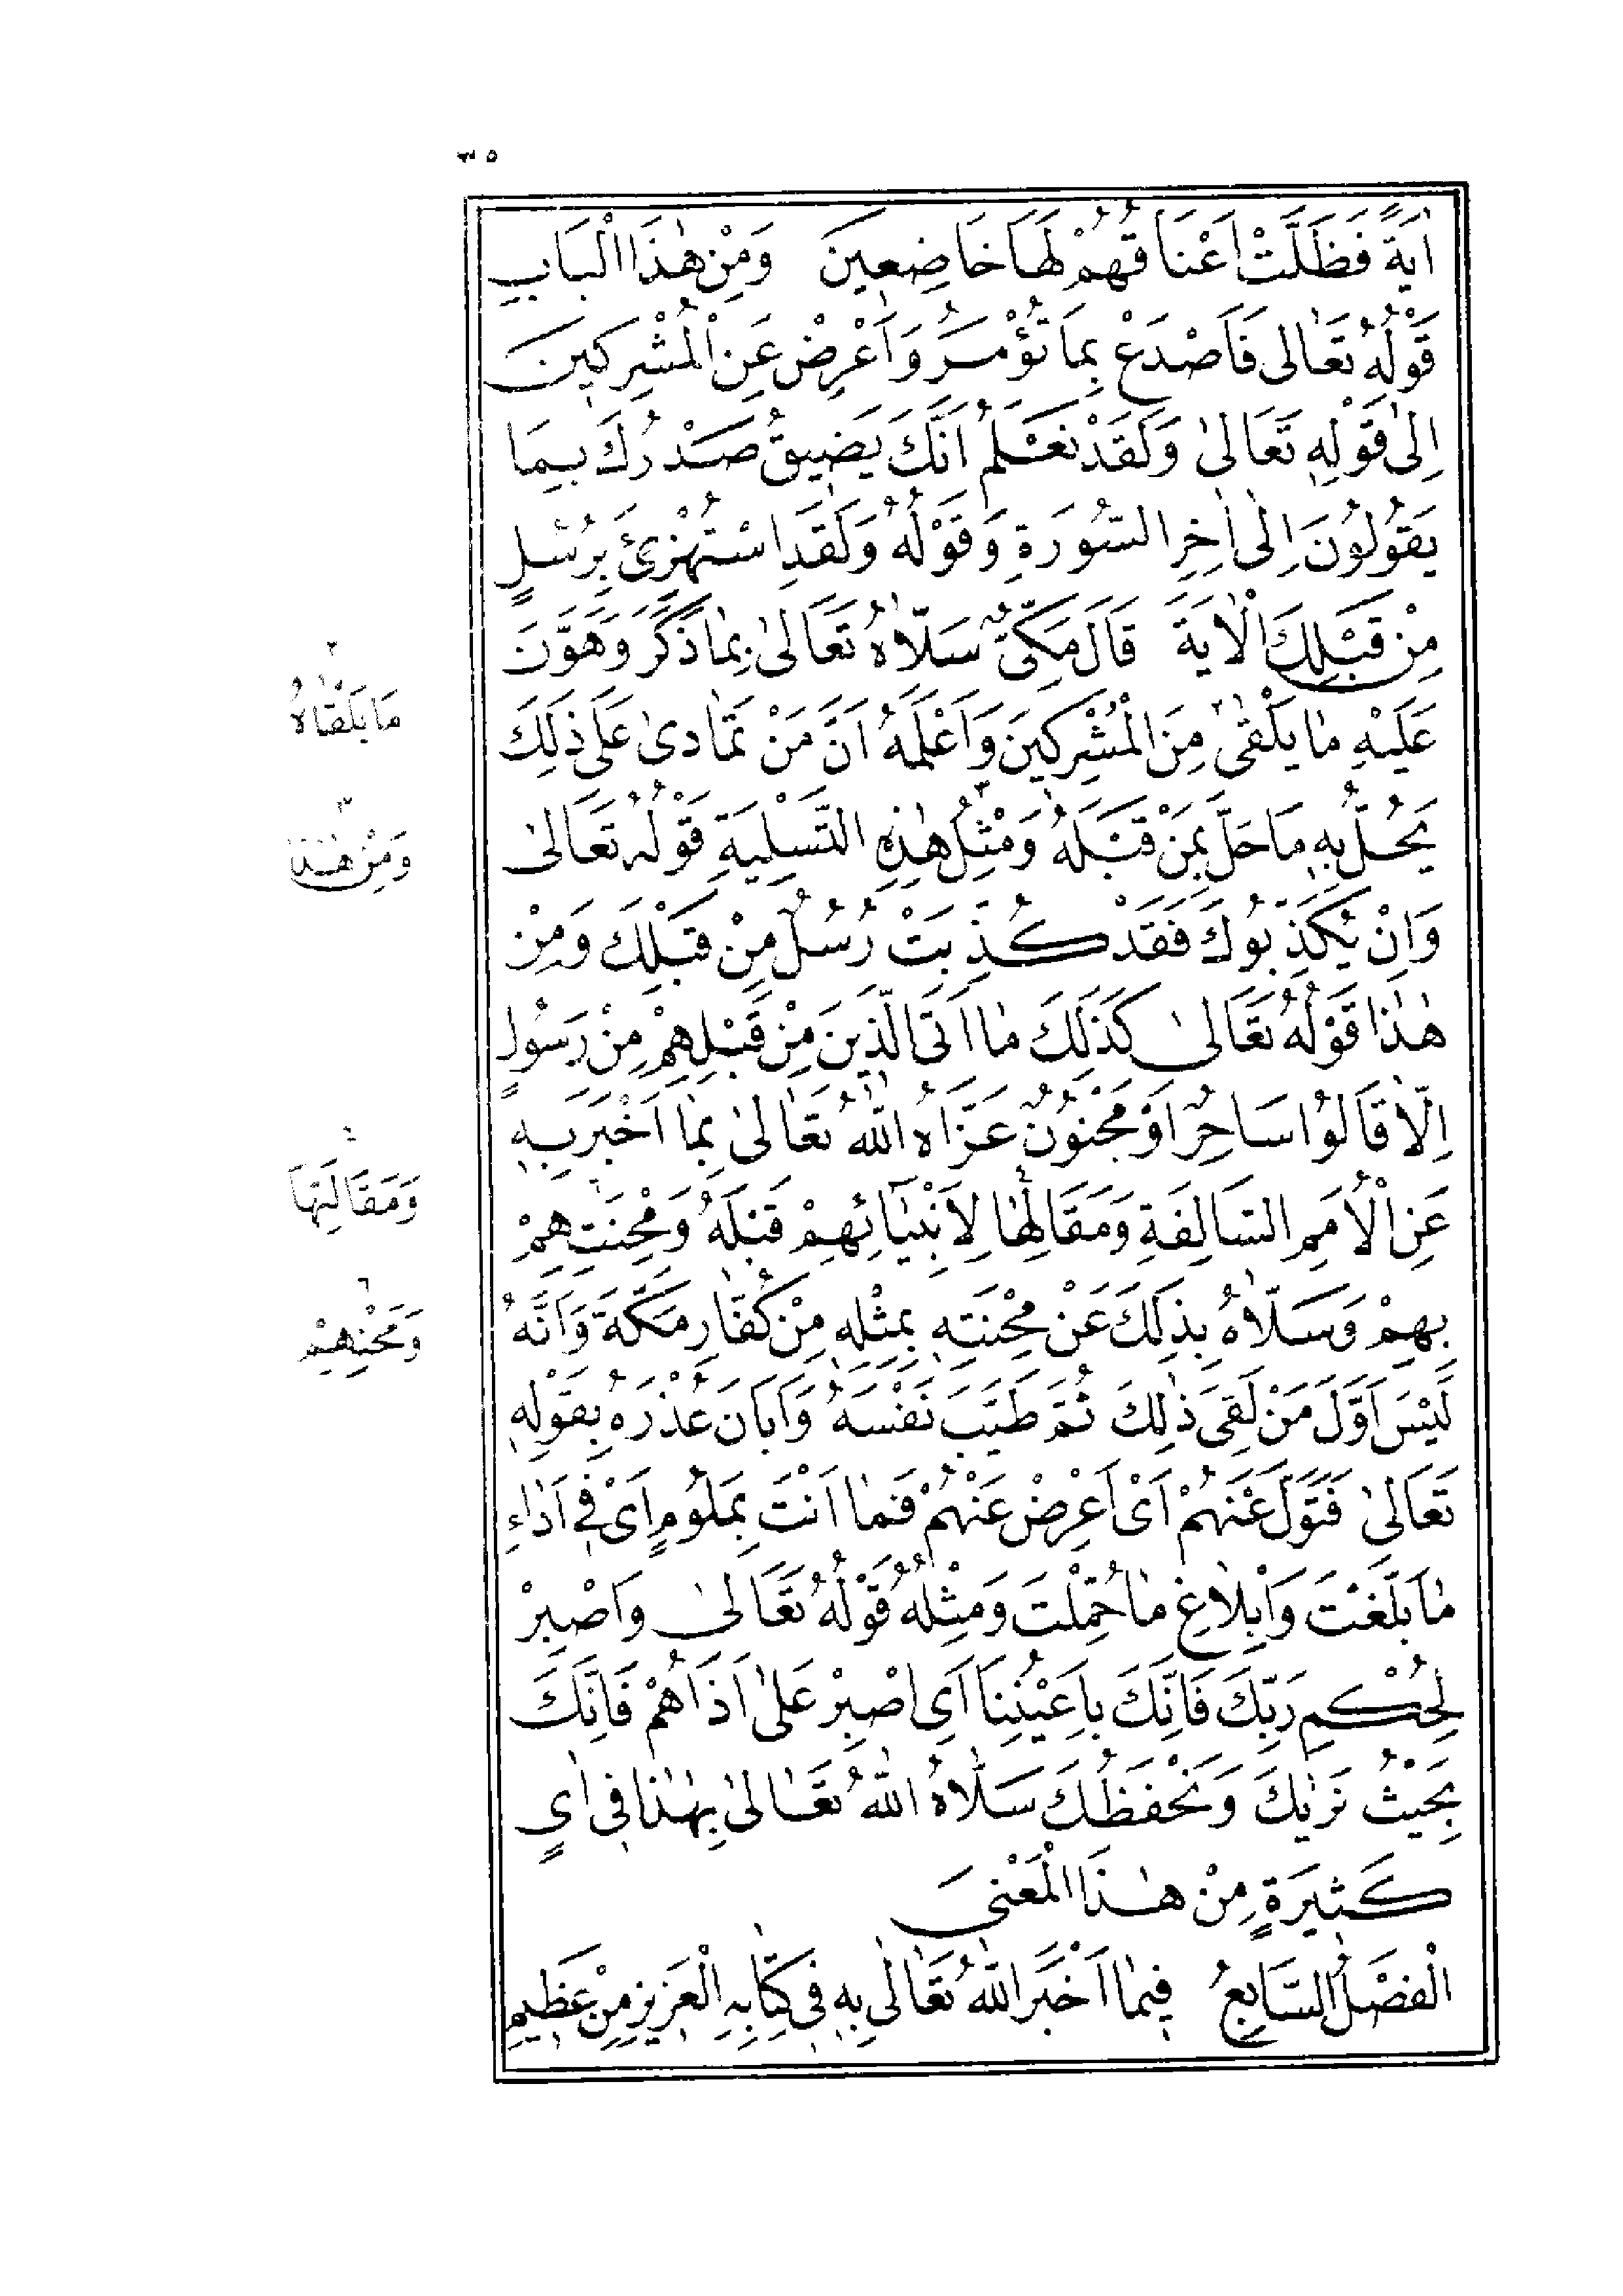 ٣٥
اٰيَةً فَظَلَّتْ اَعْنَاقُهُمْ لَهَا خَاضِعِينَ وَمِنْ هٰذَا الْبَابِ
قَوْلُهُ تَعَالٰى فَاصْدَعْ بِمَا تُؤْمَرُ وَاَعْرِضْ عَنِ الْمُشْرِكِينَ
اِلٰى قَوْلِهِ تَعَالٰى وَلَقَدْ نَعْلَمُ اَنَّكَ يَضِيقُ صَدْرُكَ بِمَا
يَقُولُونَ اِلٰى اٰخِرِ السُّورَةِ وَقَوْلُهُ وَلَقَدِ اسْتُهْزِئَ بِرُسُلٍ
مِنْ قَبْلِكَ الْاٰيَةَ قَالَ مَكِّىٌّ سَلَّاهُ تَعَالٰى بِمَا ذَكَرَ وَهَوَّنَ
عَلَيْهِ مَا يَلْقٰى مِنَ الْمُشْرِكِينَ وَاَعْلَمَهُ اَنَّ مَنْ تَمَادٰى عَلٰى ذٰلِكَ
يَحُلُّ بِهِ مَا حَلَّ بِمَنْ قَبْلَهُ وَمِثْلُ هٰذِهِ التَّسْلِيَةِ قَوْلُهُ تَعَالٰى
وَاِنْ يُكَذِّبُوكَ فَقَدْ كُذِّبَتْ رُسُلٌ مِنْ قَبْلِكَ وَمِنْ
هٰذَا قَوْلُهُ تَعَالٰى كَذٰلِكَ مَا اَتَى الَّذِينَ مِنْ قَبْلِهِمْ مِنْ رَسُولٍ
اِلَّا قَالُوا سَاحِرٌ اَوْ مَجْنُونٌ عَزَّاهُ اللّٰهُ تَعَالٰى بِمَا اَخْبَرَ بِهِ
عَنِ الْاُمَمِ السَّالِفَةِ وَمَقَالِهَا لِاَنْبِيَائِهِمْ قَبْلَهُ وَمِحْنَتِهِمْ
بِهِمْ وَسَلَّاهُ بِذٰلِكَ عَنْ مِحْنَتِهِ بِمِثْلِهِ مِنْ كُفَّارِ مَكَّةَ وَاَنَّهُ
لَيْسَ اَوَّلَ مَنْ لَقِىَ ذٰلِكَ ثُمَّ طَيَّبَ نَفْسَهُ وَاَبَانَ عُذْرَهُ بِقَوْلِهِ
تَعَالٰى فَتَوَلَّ عَنْهُمْ اَىْ اَعْرِضْ عَنْهُمْ فَمَا اَنْتَ بِمَلُومٍ اَىْ فِى اَدَاءِ
مَا بَلَّغْتَ وَاِبْلَاغِ مَا حُمِّلْتَ وَمِثْلُهُ قَوْلُهُ تَعَالٰى وَاصْبِرْ
لِحُكْمِ رَبِّكَ فَاِنَّكَ بِاَعْيُنِنَا اَىِ اصْبِرْ عَلٰى اَذَاهُمْ فَاِنَّكَ
بِحَيْثُ نَرٰيكَ وَنَحْفَظُكَ سَلَّاهُ اللّٰهُ تَعَالٰى بِهٰذَا فِى اٰىٍ
كَثِيرَةٍ مِنْ هٰذَا الْمَعْنٰى
الْفَصْلُ السَّابِعُ فِيمَا اَخْبَرَ اللّٰهُ تَعَالٰى بِهِ فِى كِتَابِهِ الْعَزِيزِ مِنْ عَظِيمِ
٢
مَا يَلْقَاهُ
٣
وَمِنْ هٰذَا
٤
وَمَقَالَتِهَا
٦
وَمِحَنِهِمْ